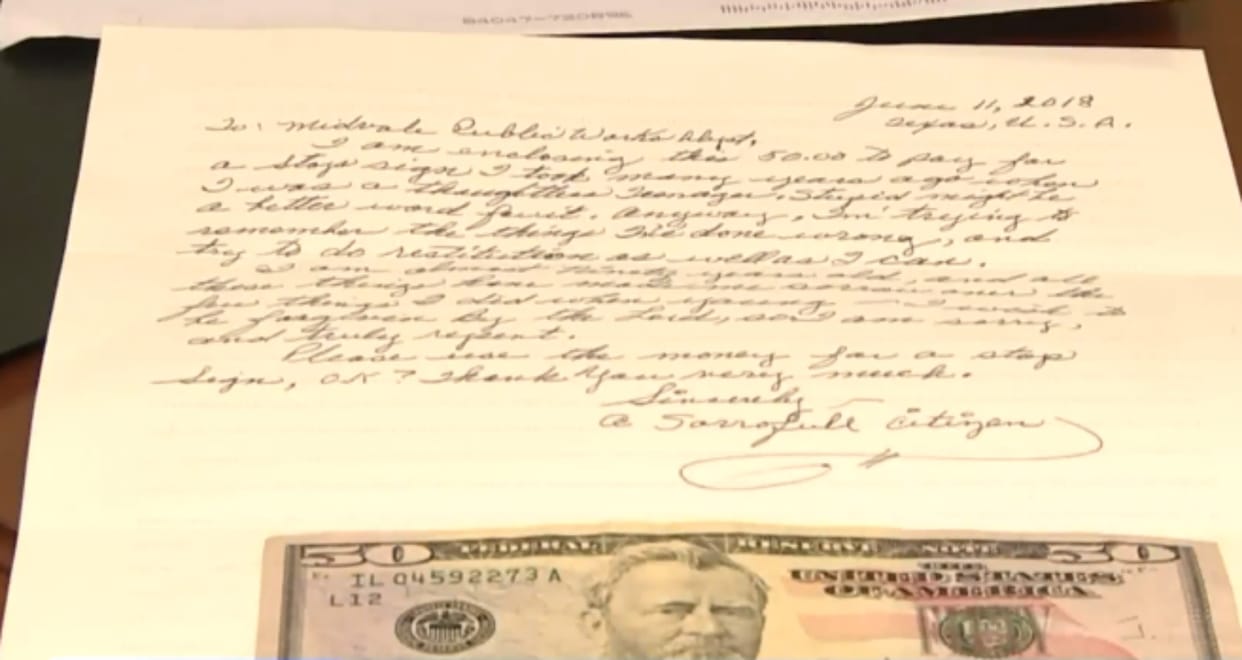 84047-720896
June 11, 2018
Texas, U.S.A.
To: Midvale Public Works Dept,
I am enclosing this 50.00 to pay for
a stop sign I took many years ago when
I was a thoughtless teenager. Stupid might be
a better word for it. Anyway, I'm trying to
remember the things I've done wrong, and
try to do restitution as well as I can.
I am almost ninety years old, and all
these things have made me sorrow over the
few things I did when young — I want to
be forgiven by the Lord, so I am sorry,
and truly repent.
Please use the money for a stop
sign, OK? Thank You very much.
Sincerely
A Sorrofull Citizen
50 FEDERAL RESERVE NOTE 50
IL 04592273 A
L12
THE
UNITED STATES
OF AMERICA